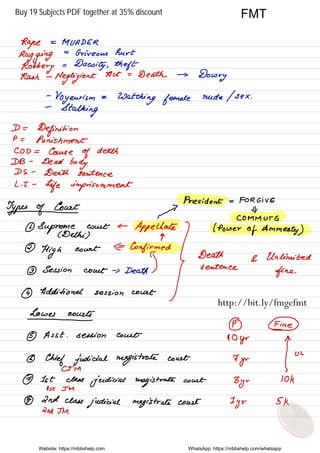 Buy 19 Subjects PDF together at 35% discount
FMT
Rape = MURDER
Ragging = Grievous hurt
Robbery = Dacoity, theft
Rash - Negligient Act = Death → Dowry
- Voyeurism = Watching female nude / sex.
- Stalking
D = Definition
P = Punishment
COD = Cause of death
DB - Dead body
DS - Death sentence
L.I - Life imprisonment
Types of Court
President = FORGIVE
COMMUTE
(Power of Ammesty)
① Supreme court ← Appellate
(Delhi)
② High court ⇐ Confirmed
Death & Unlimited
sentence fine.
③ Session court → Death
④ Additional session court
http://bit.ly/fmgefmt
Lower courts
P Fine
⑤ Asst. session court 10yr
⑥ Chief judicial magistrate court 7yr UL
CJM
⑦ 1st class judicial magistrate court 3yr 10k
1st JM
⑧ 2nd class judicial magistrate court 1yr 5k
2nd JM
Website: https://mbbshelp.com WhatsApp: https://mbbshelp.com/whatsapp